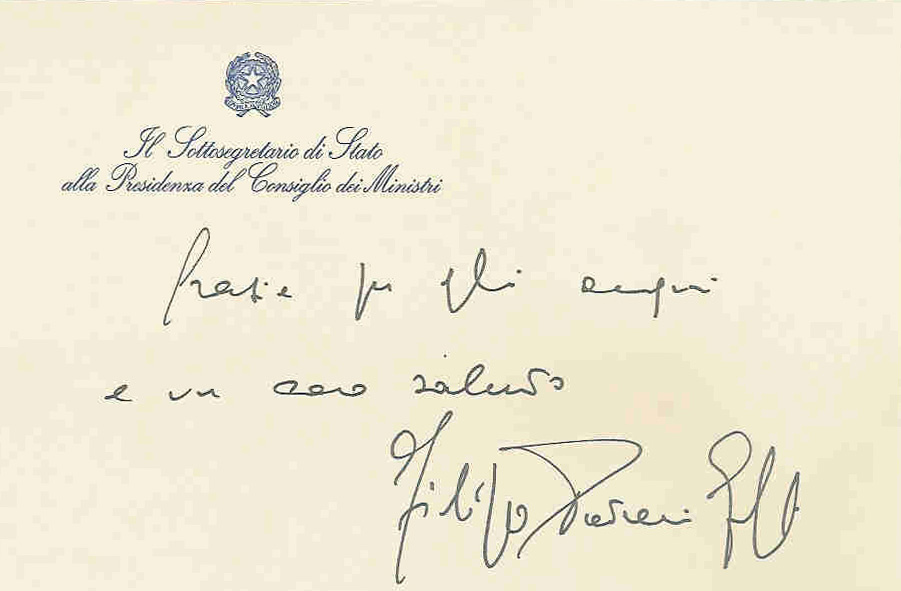 Il Sottosegretario di Stato
alla Presidenza del Consiglio dei Ministri
Grazie per gli auguri
e un caro saluto
Filippo Patroni Griffi